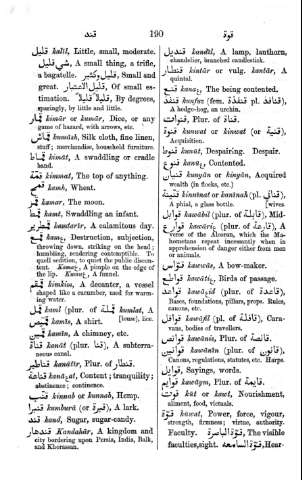 قند 190 قوة
قليل kalīl, Little, small, moderate.
شي قليل, A small thing, a trifle,
a bagatelle. قليل وكثير, Small and
great. قليل الاعتبار, Of small es-
timation. قليلاً قليلاً, By degrees,
sparingly, by little and little.
قمار kimār or kumār, Dice, or any
game of hazard, with arrows, etc.
قماش kumāsh, Silk cloth, fine linen,
stuff; merchandise, household furniture.
قماط kimāt, A swaddling or cradle
band.
قمة kimmat, The top of anything.
قمح kamh, Wheat.
قمر kamar, The moon.
قمط kamt, Swaddling an infant.
kamtarīr, A calamitous day.
قمع Destruction, subjection,
throwing down, striking on the head;
humbling, rendering contemptible.
quell sedition, to quiet the public discon-
tent. A pimple on the edge of
the lip. A funnel.
A decanter, a vessel
shaped like a cucumber, used for warm-
ing water.
قمل kaml (plur. of قملة kumlat, A
قميص kamīs, A shirt. [louse), lice.
kamīn, A chimney, etc.
قناة kanāt (plur. قنا), A subterra-
neous canal.
قناطير kanātīr, Plur. of قنطار.
قناعة Content; tranquillity;
abstinence; continence.
قنب kinnab or kunnab, Hemp.
قنبرا kumburā (or قنبرة), A lark.
قند kand, Sugar, sugar-candy.
قندهار Kandahār, A kingdom and
city bordering upon Persia, India, Balk,
and Khorassan.
قنديل kandīl, A lamp, lanthorn,
chandelier, branched candlestick.
قنطار kintār or vulg. kantār, A
quintal.
قنع The being contented.
قنفذ kunfuz (fem. قنفذة pl. قنافذ),
A hedge-hog, an urchin.
قنوات, Plur. of قناة.
قنوة kunwat or kinwat (or قنية),
Acquisition.
قنوط kunūt, Despairing. Despair.
قنوع Contented.
قنيان kunyān or kinyān, Acquired
wealth (in flocks, etc.)
قنينة kinnīnat or kanīnah (pl. قناني)
A phial, a glass bottle. [wives.
قوابل kawābil (plur. of قابلة), Mid-
قوارع kawāri (plur. of قارعة), A
verse of the Alcoran, which the Ma-
hometans repeat incessantly when in
apprehension of danger either from men
or animals.
قواس kawwās, A bow-maker.
قواطع Birds of passage.
قواعد (plur. of قاعدة),
Bases, foundations, pillars, props. Rules,
canons, etc.
قوافل kawāfil (pl. of قافلة), Cara-
vans, bodies of travellers.
Plur. of
قوانين kawānīn (plur. of قانون),
Canons, regulations, statutes, etc. Harps.
قوايل, Sayings, words.
قوايم kawāyim, Plur. of قايمة.
قوت kūt or kawt, Nourishment,
aliment, food, victuals.
قوة kūwat, Power, force, vigour,
strength, firmness; virtue, authority.
Faculty. قوة الباصرة, The visible
faculties, sight. قوة السامعة, Hear-